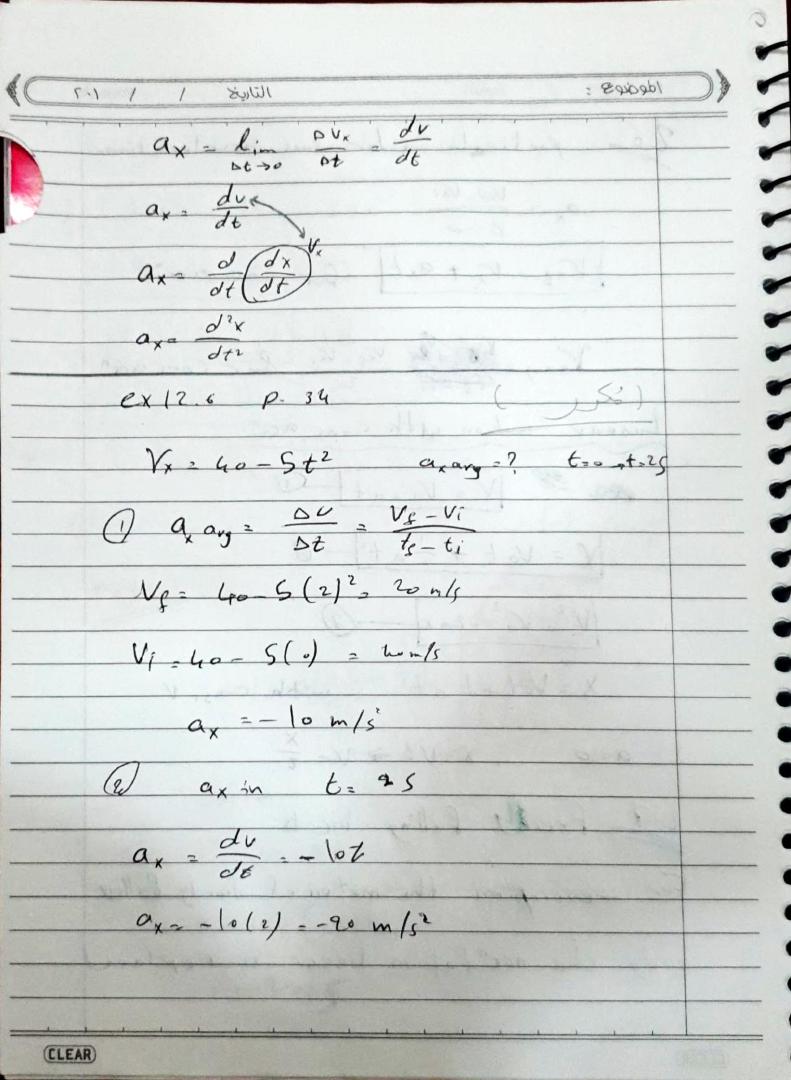 الموضوع :
التاريخ / / ٢٠١
ax = lim Δt→0 ΔVx/Δt = dv/dt
ax = dv/dt
ax = d/dt (dx/dt) Vx
ax = d²x/dt²
ex 12.6 p. 34 (مكرر)
Vx = 40 - 5t² ax avg = ? t=0 → t=2s
① ax avg = ΔV/Δt = Vf - Vi / tf - ti
Vf = 40 - 5(2)² = 20 m/s
Vi = 40 - 5(0) = 40 m/s
ax = -10 m/s²
② ax in t = 2s
ax = dv/dt = -10t
ax = -10(2) = -20 m/s²
CLEAR